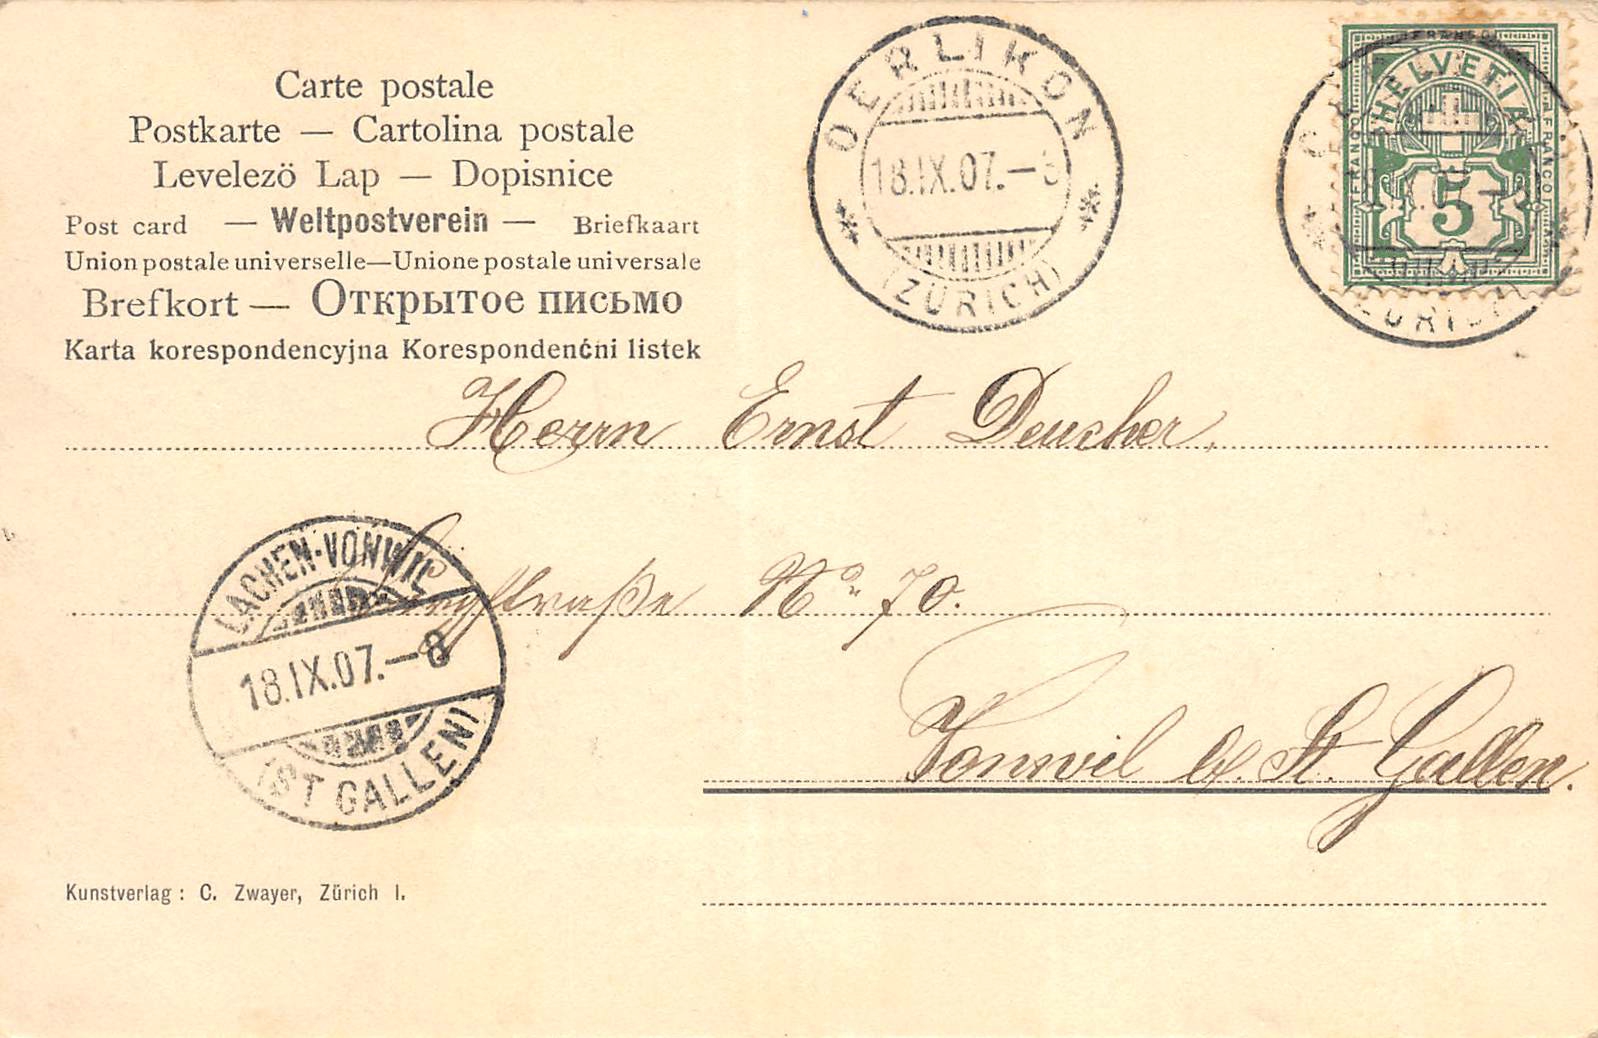 Carte postale
Postkarte — Cartolina postale
Levelezö Lap — Dopisnice
Post card — Weltpostverein — Briefkaart
Union postale universelle—Unione postale universale
Brefkort — Открытое письмо
Karta korespondencyjna Korespondenćni listek
OERLIKON
18.IX.07.–8
(ZÜRICH)
FRANCO
HELVETIA
FRANCO
FRANCO
5
ZÜRICH
Herrn Ernst Deucher.
LACHEN-VONWIL
18.IX.07.–8
(ST GALLEN)
No. 70.
Vonwil b. St. Gallen.
Kunstverlag : C. Zwayer, Zürich I.